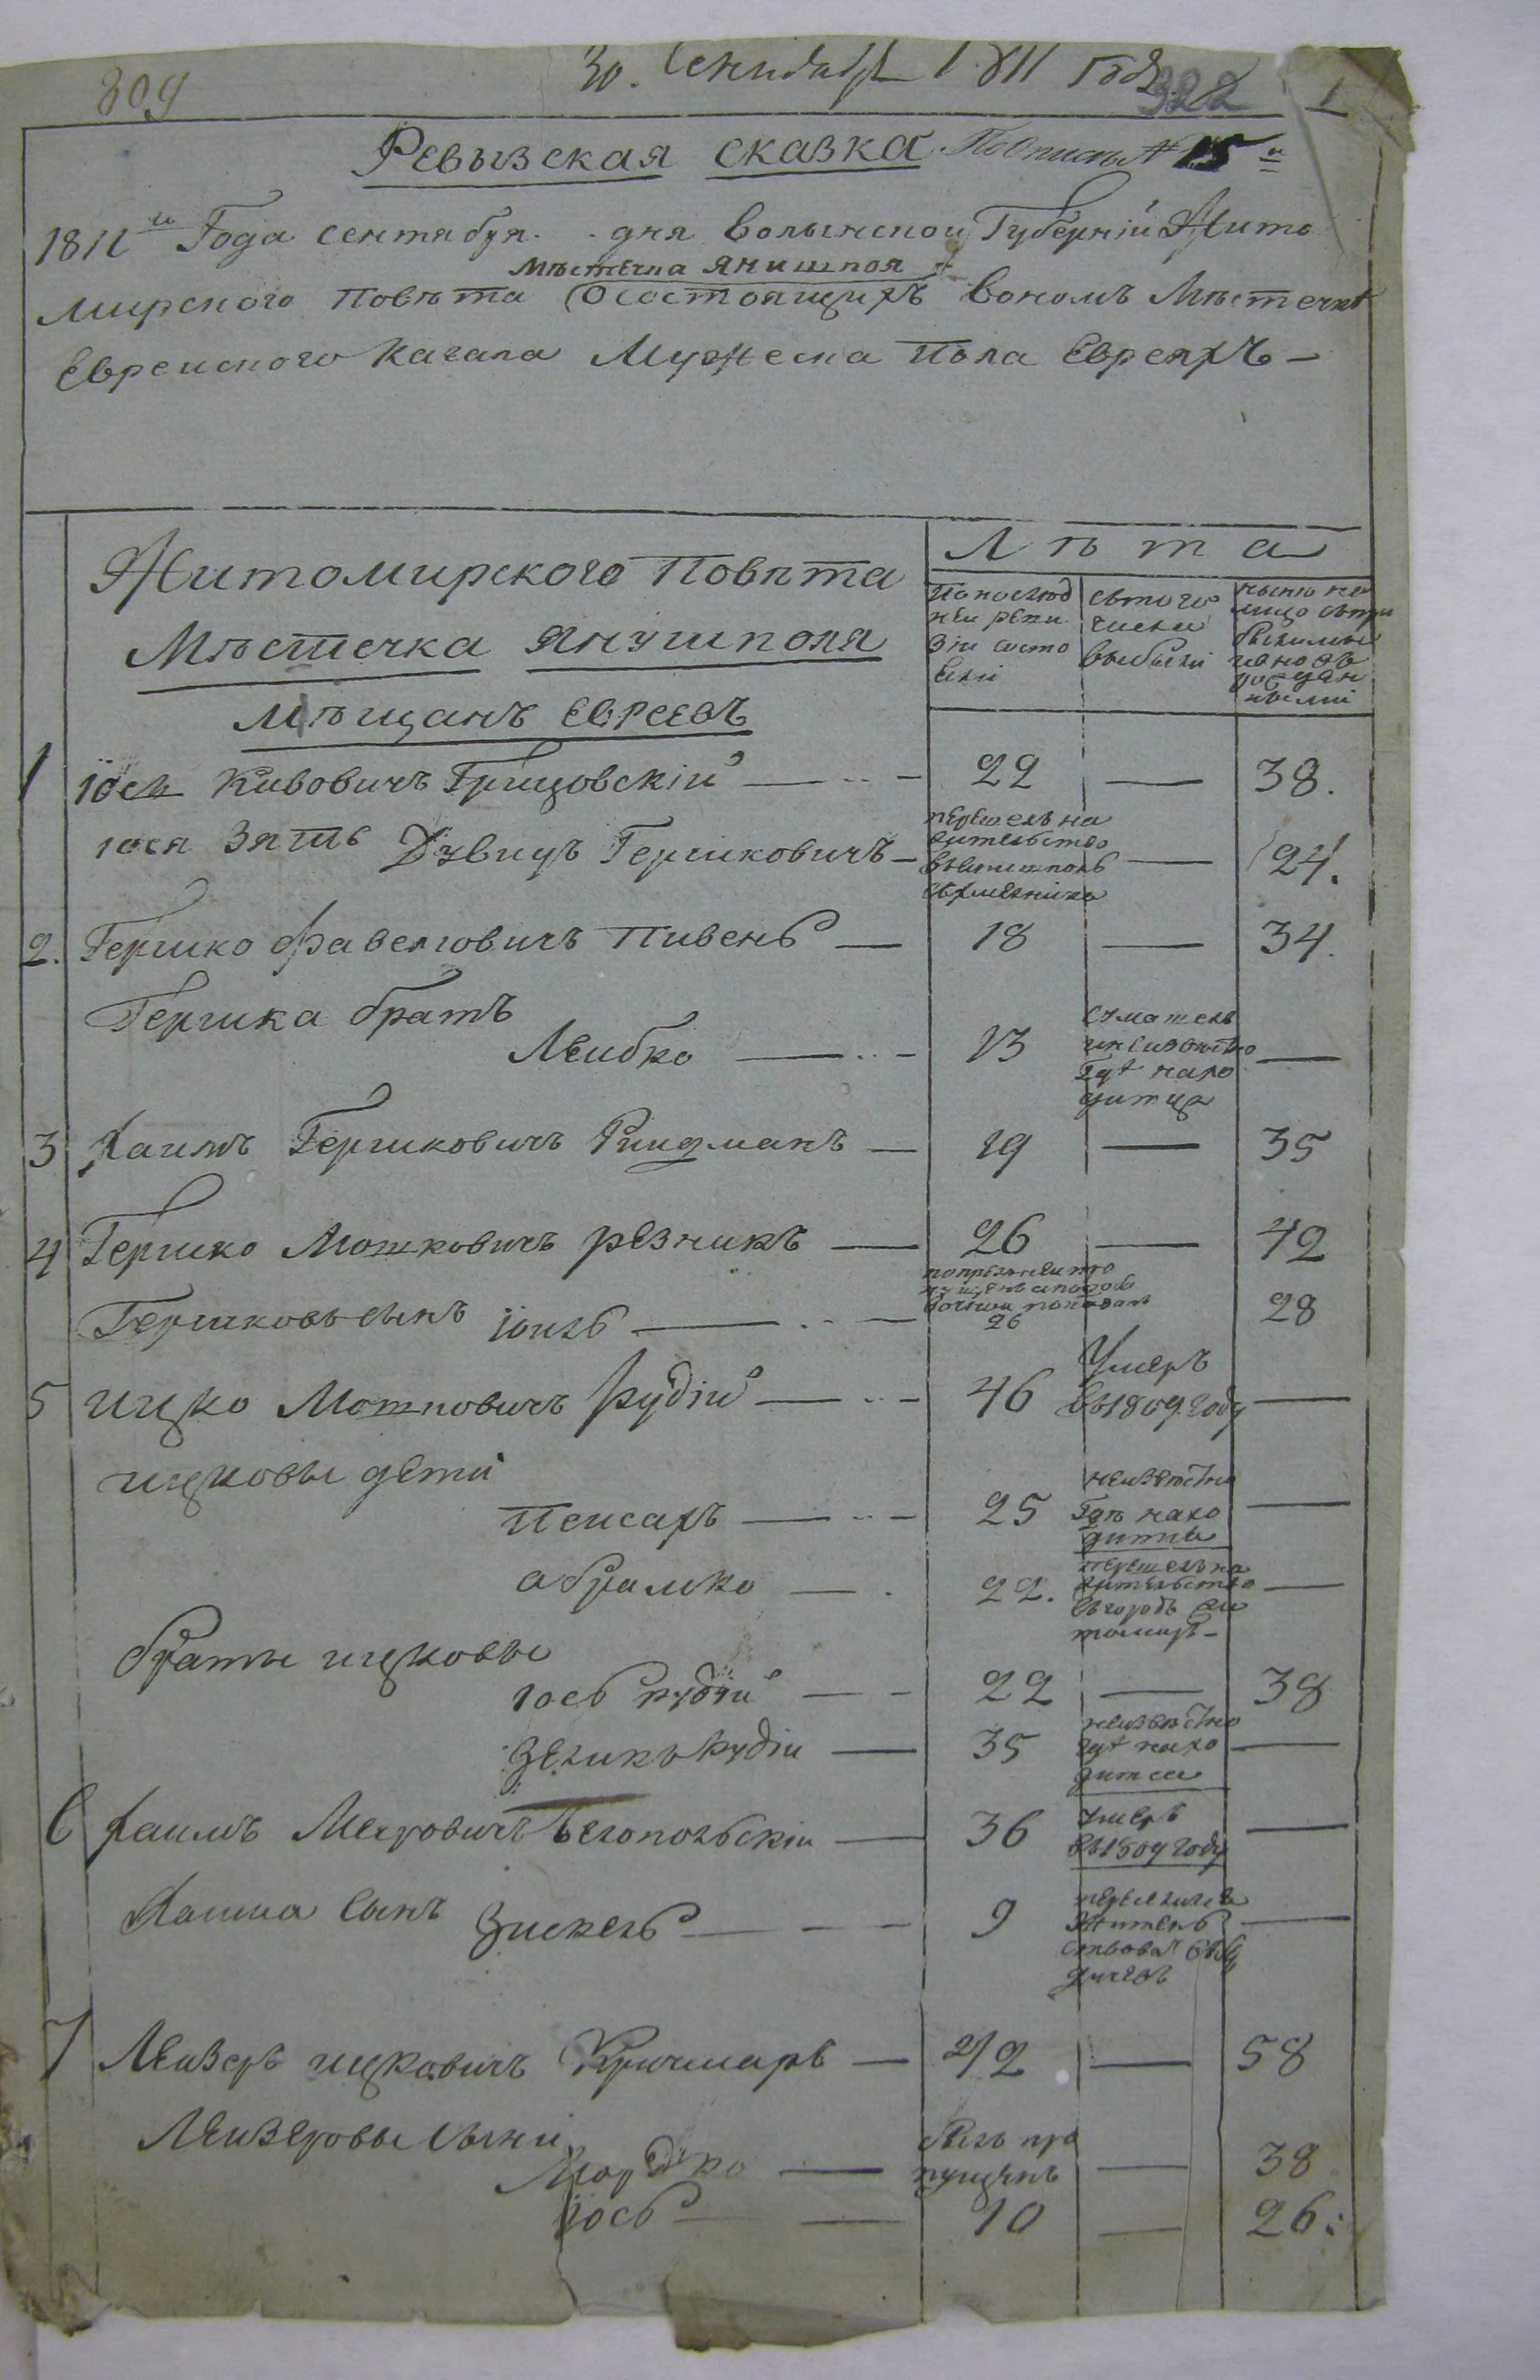 30. Сентября 1811 года
809
322
1
Ревызская сказка Пописы № 15й
1811го Года сентября . . дня волынской Губерніи Жито
местечка янишпол
мирского повѣта О состоящихъ вономъ мѣстечкѣ
Евреиского кагала мужеска пола Евреяхъ —
Житомирского повѣта
Мѣстечка янушполя
мѣщанъ евреевъ
Лѣта
по послѣд
ней реви
зіи состо
яли
съ того
числа
выбыли
ныне на
лицо съ при
былыми
и вновь
рожден
ными
1 іось Кивовичъ Грицовскій — 22 — 38.
іося зять Дувидъ Гершковичъ —
перешелъ на
жительство
— 24.
2. Гершко Фавелювичъ Пивень — 18 — 34.
Гершка братъ
Леибко — 13
и неизвѣстно
гдѣ нахо
дитца
—
3 Хаимъ Гершковичъ Ридманъ — 19 — 35
4 Гершко Мошковичъ резникъ — 26 — 42
Гершковъ сынъ іоиль —
26
28
5 ицко Мошковичъ рудіи — 46
Умеръ
въ 1809. году
—
ицковы дети
Пеисахъ — 25
неизвѣстно
гдѣ нахо
дитца
—
абрамко — 22.
перешелъ на
жительство
въ городъ жи
томиръ —
—
браты ицковы
іось рудіи — 22 — 38
Зеликъ рудіи — 35
неизвѣстно
гдѣ нахо
дитса
—
6 Хаимъ Меировичъ Белопольскіи — 36
умеръ
въ 1809 году
—
Хаима сынъ Зискель — 9
—
7 Леизеръ ицковичъ Кричмаръ — 42 — 58
Леизеровы сыни
Мордко —
былъ про
пущенъ
— 38
іось — 10 — 26.